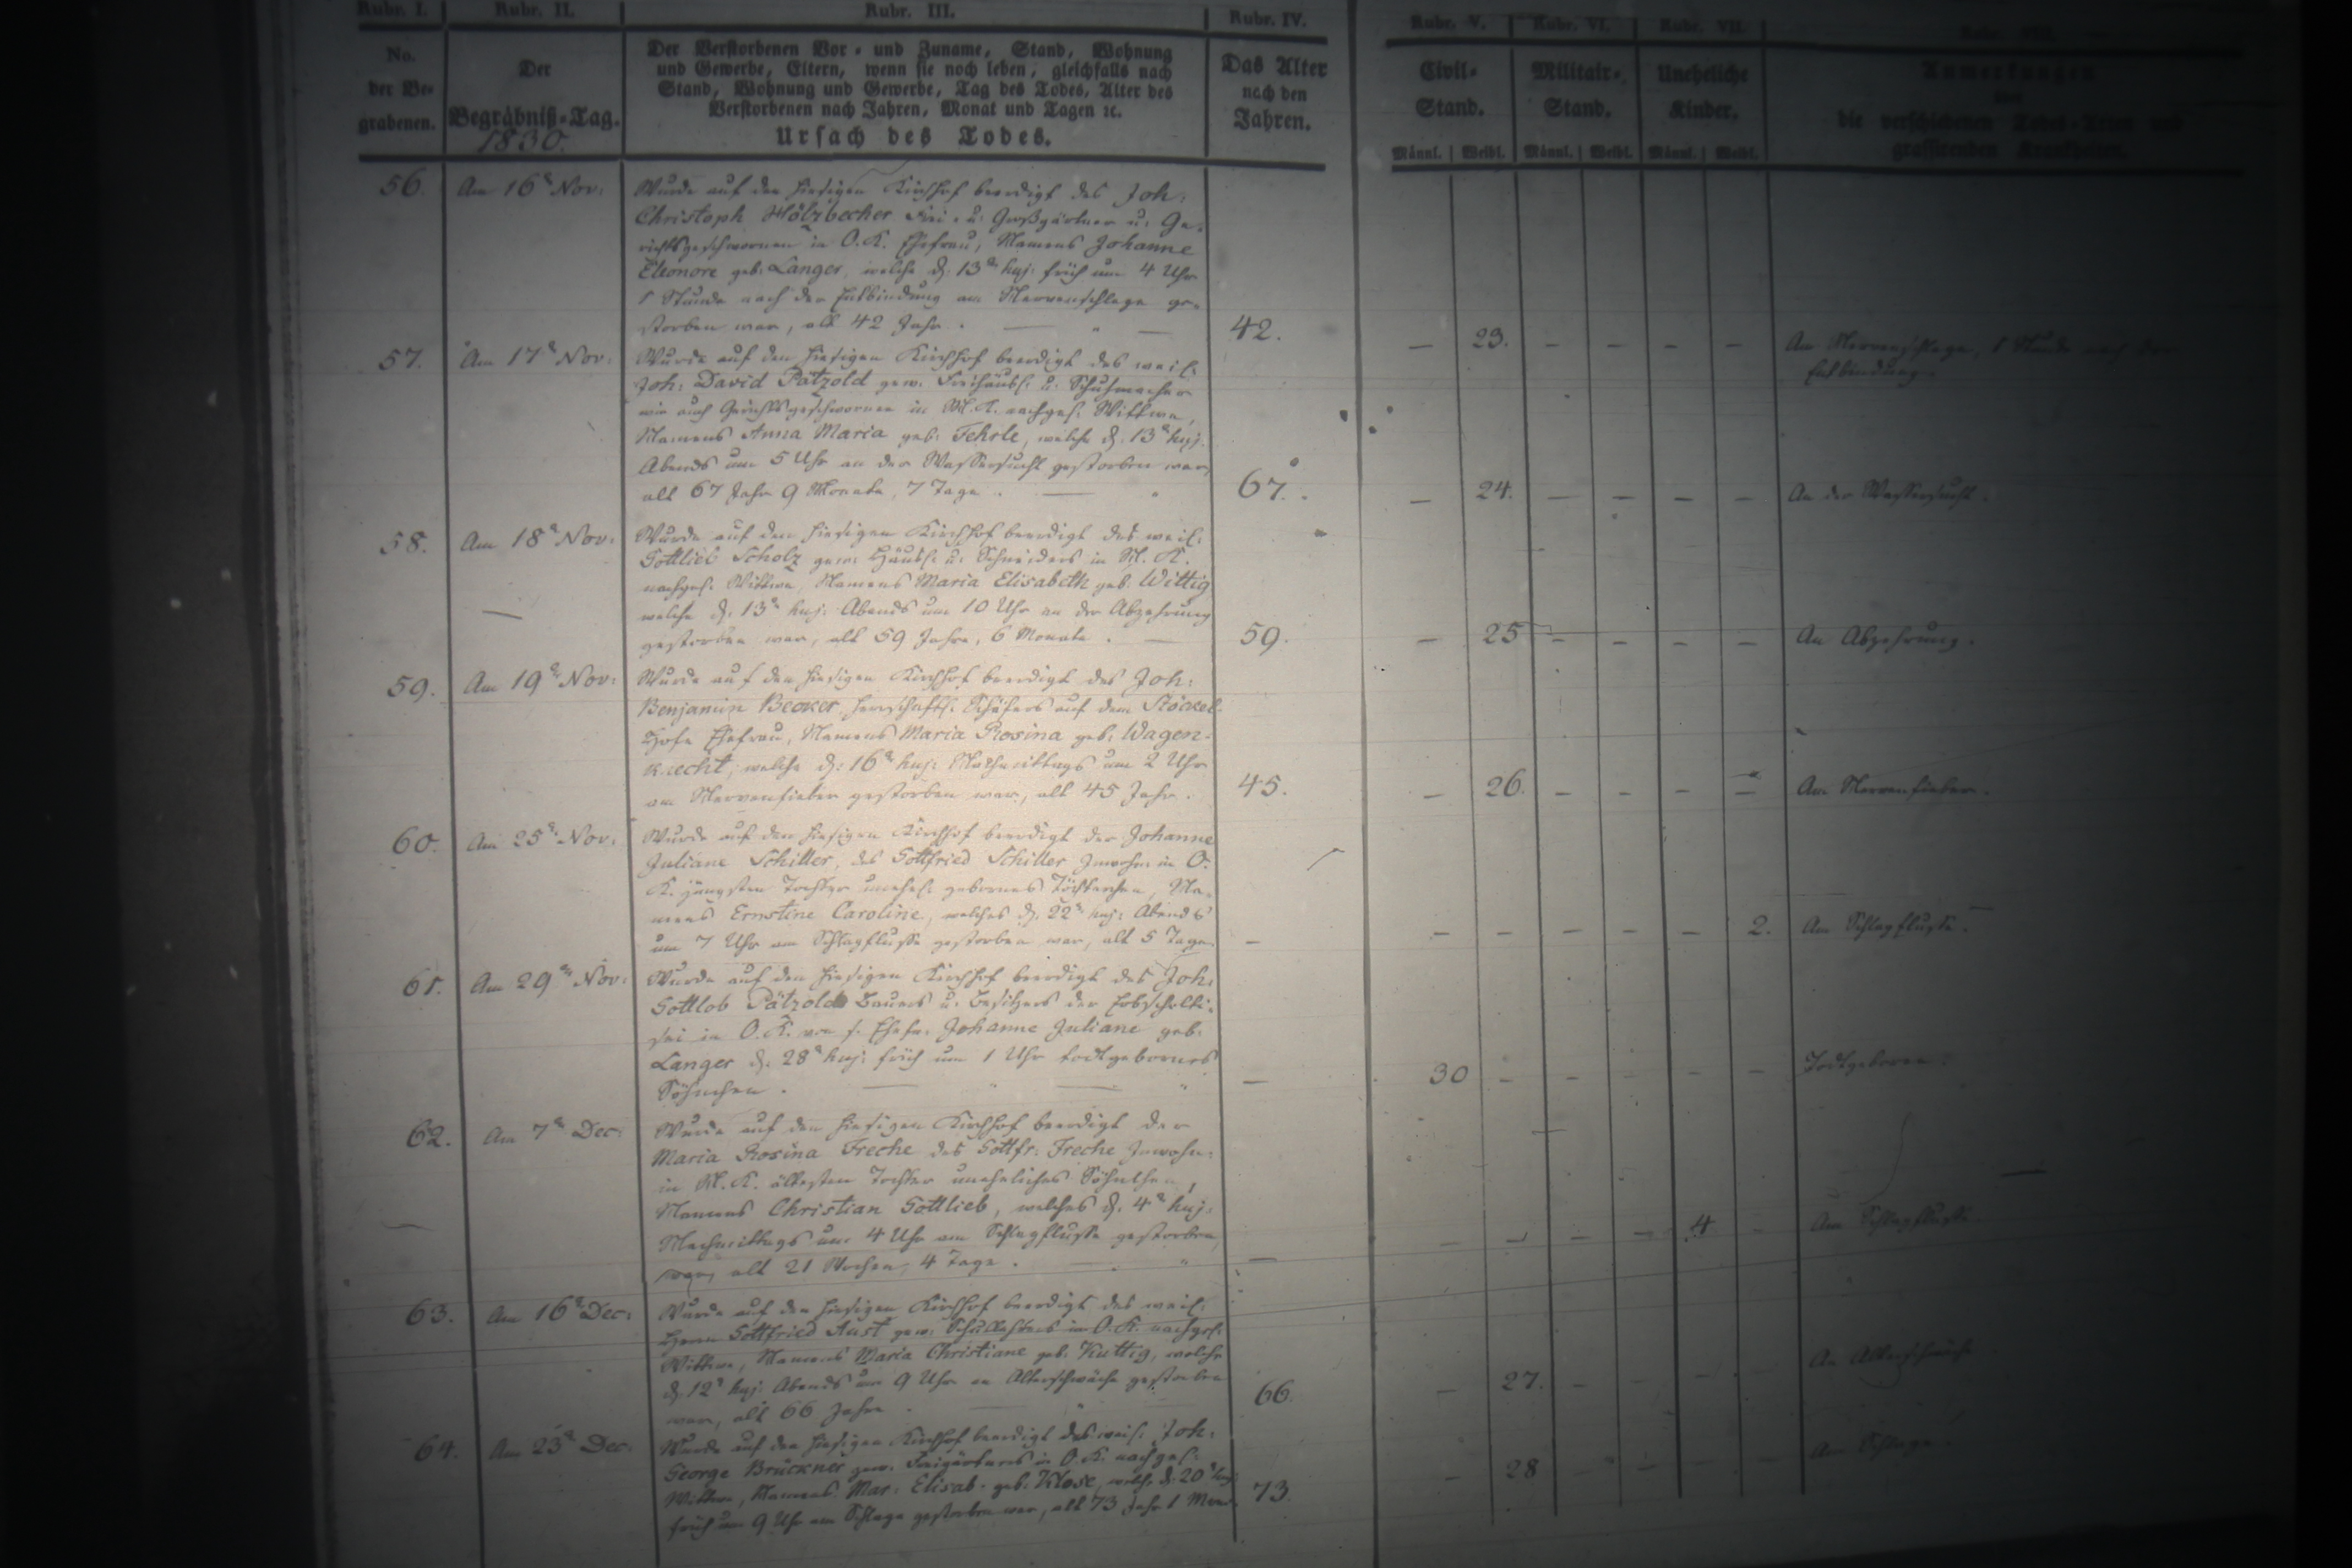 Rubr. I. Rubr. II. Rubr. III. Rubr. IV. Rubr. V. Rubr. VI. Rubr. VII.
No.
der Be-
grabenen.
Der
Begräbniß-Tag.
1830.
Der Verstorbenen Vor- und Zuname, Stand, Wohnung
und Gewerbe, Eltern, wenn sie noch leben, gleichfalls nach
Stand, Wohnung und Gewerbe, Tag des Todes, Alter des
Verstorbenen nach Jahren, Monat und Tagen ꝛc.
Ursach des Todes.
Das Alter
nach den
Jahren.
Civil-
Stand.
Militair-
Stand.
Uneheliche
Kinder.
Anmerkungen
über
die verschiedenen Todes-Arten und
grassirenden Krankheiten.
Männl. Weibl. Männl. Weibl. Männl. Weibl.
56. Am 16n Nov: Wurde auf den hiesigen Kirchhof beerdigt des Joh:
Christoph Hölzbecher Frei- u: Großgärtner u: Ge-
richtsgeschwornen in O. K. Ehefrau, Namens Johanne
Eleonore geb: Langer, welche d: 13n huj: früh um 4 Uhr
1 Stunde nach der Entbindung am Nervenschlage ge-
storben war, alt 42 Jahr. — " —
42. — 23. — — — — Am Nervenschlage, 1 Stunde nach der
Entbindung.
57. Am 17n Nov: Wurde auf den hiesigen Kirchhof beerdigt des weil:
Joh: David Pätzold gew. Freihäusl: u: Schuhmacher
wie auch Gerichtsgeschwornen in Nl. K. nachgel: Wittwe,
Namens Anna Maria geb: Fehrle, welche d: 13n huj:
Abends um 5 Uhr an der Wassersucht gestorben war,
alt 67 Jahr 9 Monate, 7 Tage. — "
67. — 24. — — — — An der Wassersucht.
58. Am 18n Nov: Wurde auf den hiesigen Kirchhof beerdigt des weil:
Gottlieb Scholz gew: Häusl: u: Schneiders in Nl. K.
nachgel: Wittwe, Namens Maria Elisabeth geb: Wittig
welche d: 13n huj: Abends um 10 Uhr an der Abzehrung
gestorben war, alt 59 Jahre, 6 Monate. —
59. — 25 — — — — An Abzehrung.
59. Am 19n Nov: Wurde auf den hiesigen Kirchhof beerdigt des Joh:
Benjamin Becker, herrschaftl: Schäfers auf dem Stöckel-
Hofe Ehefrau, Namens Maria Rosina geb: Wagen-
knecht, welche d: 16n huj: Nachmittags um 2 Uhr
am Nervenfieber gestorben war, alt 45 Jahr.
45. — 26. — — — — Am Nervenfieber.
60. Am 25n Nov: Wurde auf den hiesigen Kirchhof beerdigt der Johanne
Juliane Schiller, des Gottfried Schiller Inwohn: in O.
K. jüngsten Tochter unehel: gebornes Töchterchen, Na-
mens Ernstine Caroline, welches d: 22n huj: Abends
um 7 Uhr am Schlagflusse gestorben war, alt 5 Tage.
— — — — — — 2. Am Schlagflusse.
61. Am 29n Nov: Wurde auf den hiesigen Kirchhof beerdigt des Joh:
Gottlob Pätzold Bauers u. Besitzers der Erbscholti-
sei in O. K. von s. Ehefr: Johanne Juliane geb:
Langer d: 28n huj: früh um 1 Uhr todtgebornes
Söhnchen. — " — "
— 30 — — — — — Todtgeboren.
62. Am 7n Dec: Wurde auf den hiesigen Kirchhof beerdigt der
Maria Rosina Freche des Gottfr: Freche Inwohn:
in Nl. K. ältesten Tochter uneheliches Söhnchen,
Namens Christian Gottlieb, welches d: 4n huj:
Nachmittags um 4 Uhr am Schlagflusse gestorben
war, alt 21 Wochen, 4 Tage. — "
— — — — — 4 — Am Schlagflusse.
63. Am 16n Dec: Wurde auf den hiesigen Kirchhof beerdigt des weil:
Herrn Gottfried Aust gew: in O. K. nachgel:
Wittwe, Namens Maria Christiane geb: Kuttig, welche
d: 12n huj: Abends um 9 Uhr an Alterschwäche gestorben
war, alt 66 Jahre. —
66. — 27. — — — — An Alterschwäche
64. Am 23n Dec: Wurde auf den hiesigen Kirchhof beerdigt des weil: Joh:
George Brückner gew: Freigärtners in O. K. nachgel:
Wittwe, Namens: Mar: Elisab. geb: Klose, welche d: 20n huj:
früh um 9 Uhr am Schlage gestorben war, alt 73 Jahr 1 Mon:
73. — 28 — — — — Am Schlage.